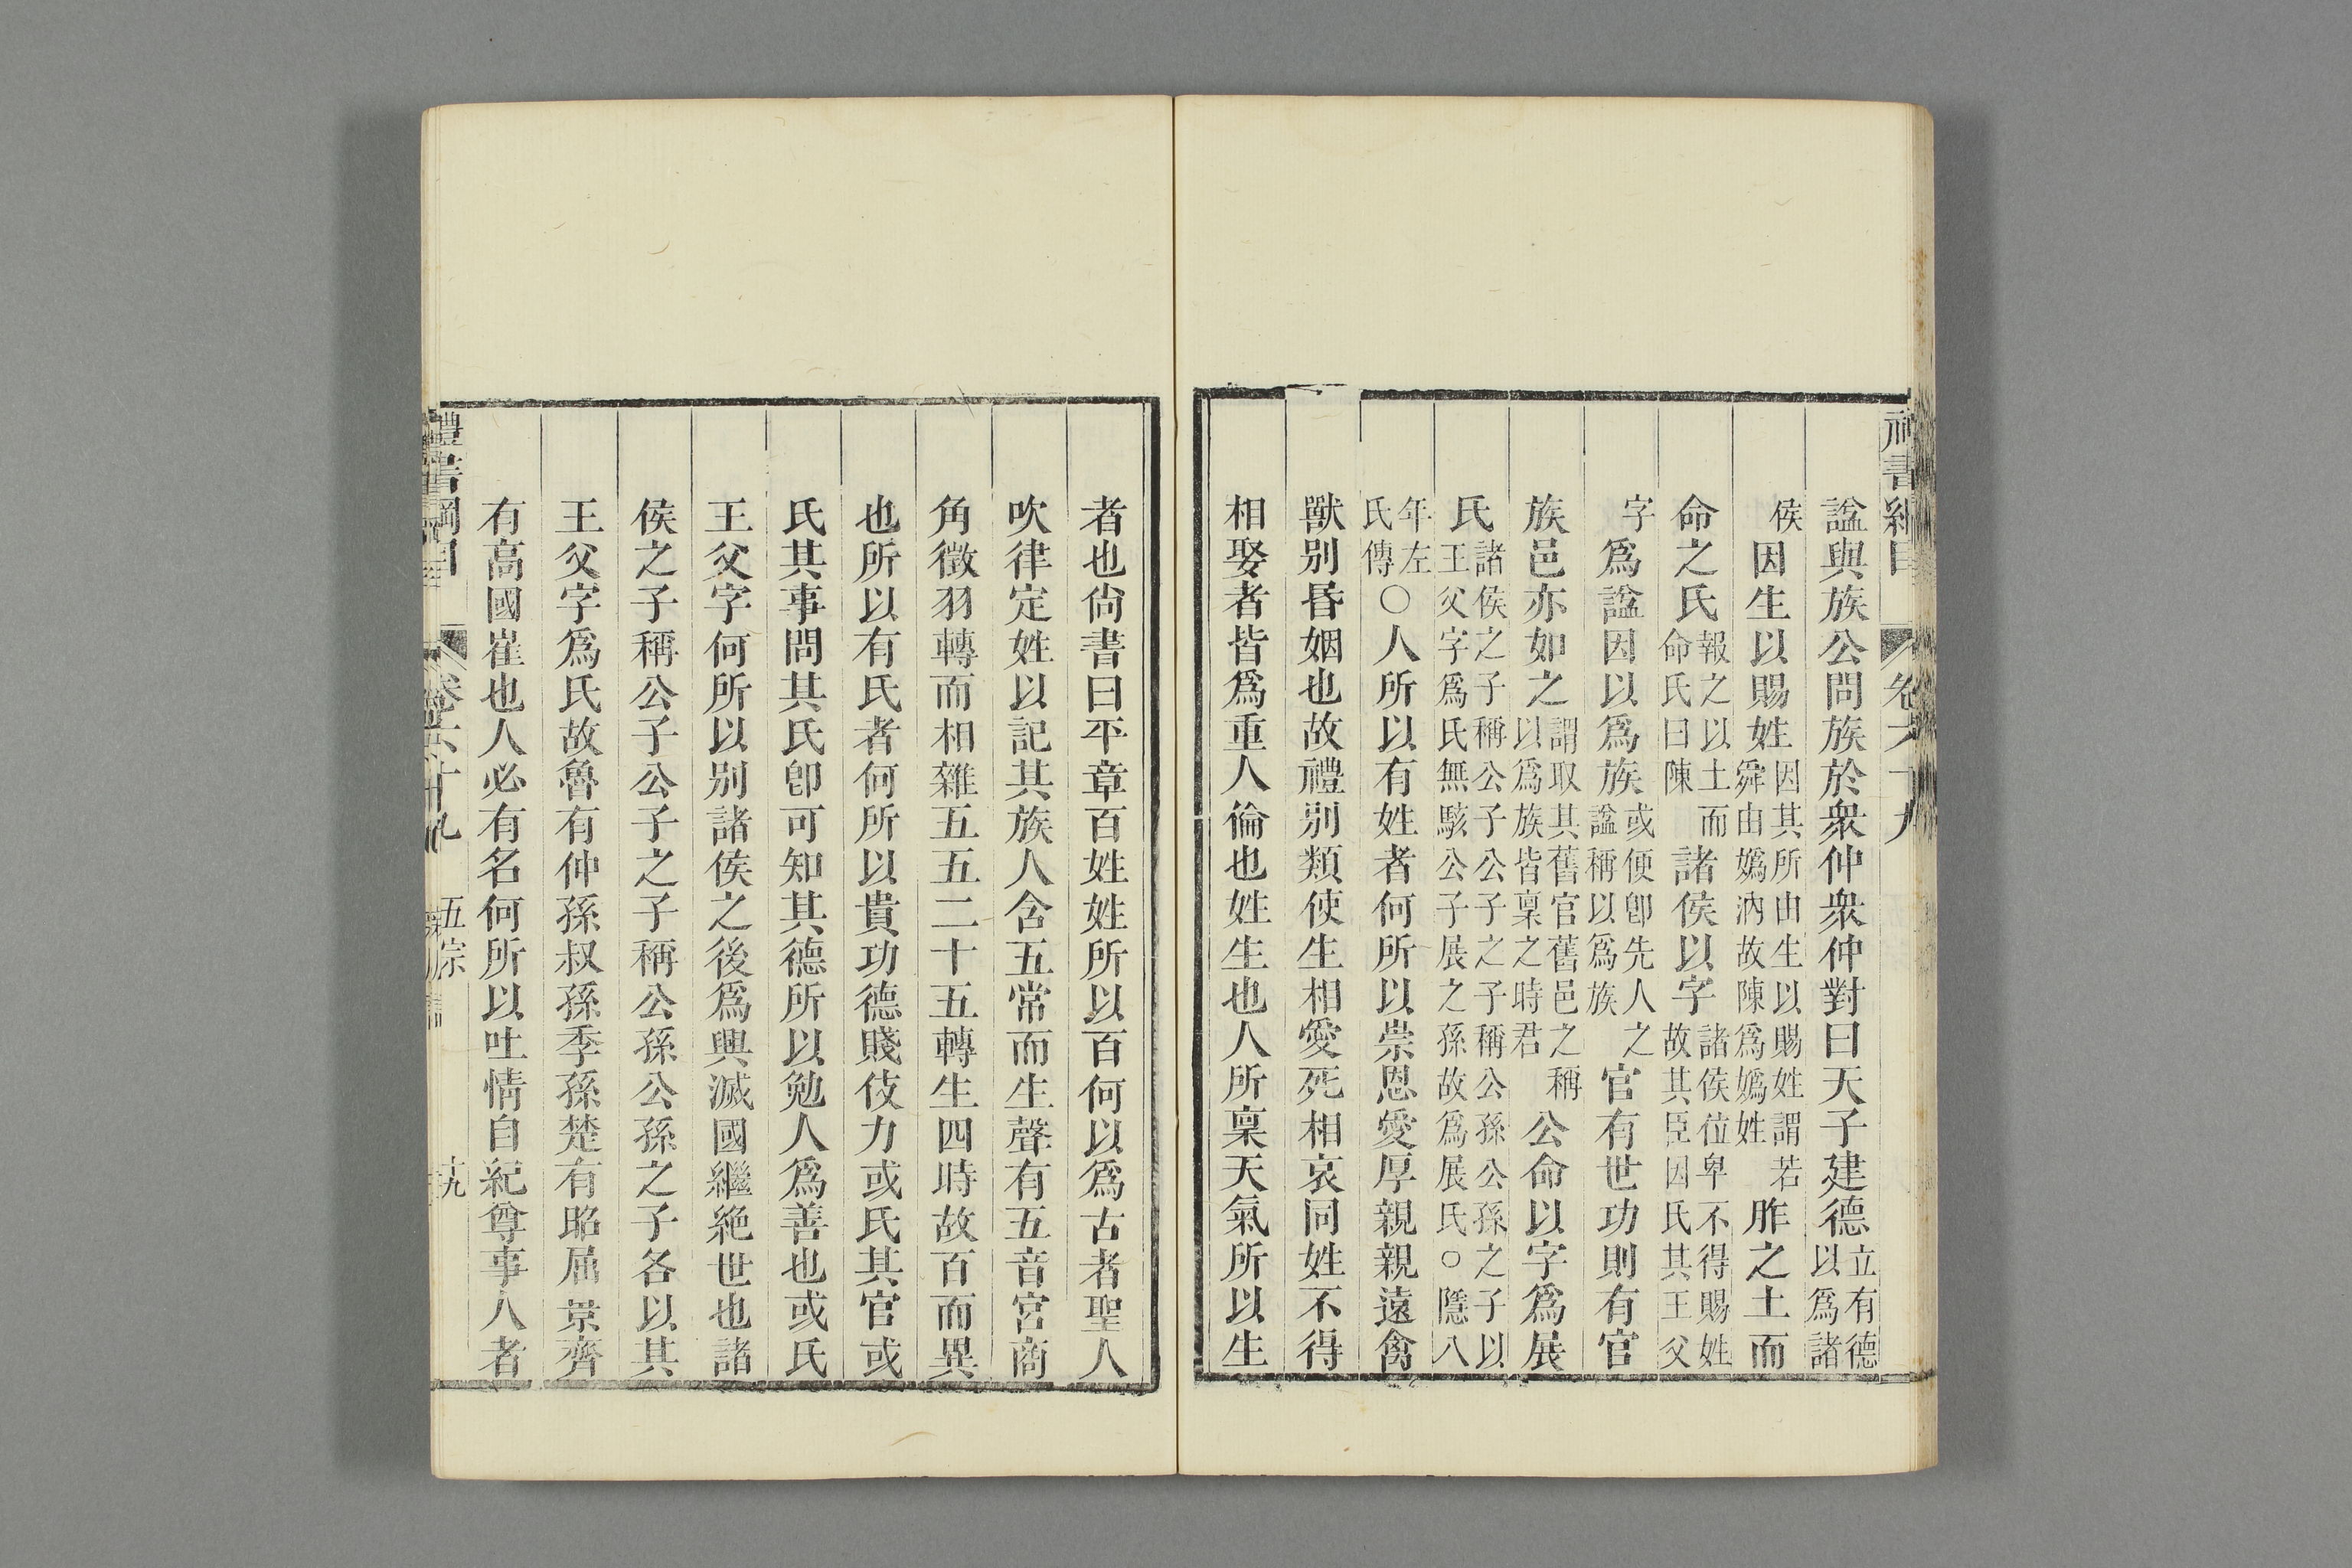 諡與族公問族於衆仲衆仲對曰天子建德立有德以爲諸
侯因生以賜姓因其所由生以賜姓謂若舜由嬀汭故陳爲嬀姓胙之土而
命之氏報之以土而命氏曰陳諸侯以字諸侯位卑不得賜姓故其臣因氏其王父
字爲諡因以爲族或便卽先人之諡稱以爲族官有世功則有官
族邑亦如之謂取其舊官舊邑之稱以爲族皆稟之時君公命以字爲展
氏諸侯之子稱公子公子之子稱公孫公孫之子以王父字爲氏無駭公子展之孫故爲展氏○隱八
年左氏傳○人所以有姓者何所以崇恩愛厚親親遠禽
獸别昏姻也故禮别類使生相愛死相哀同姓不得
相娶者皆爲重人倫也姓生也人所稟天氣所以生
者也尙書曰平章百姓姓所以百何以爲古者聖人
吹律定姓以記其族人含五常而生聲有五音宮商
角徵羽轉而相雜五五二十五轉生四時故百而異
也所以有氏者何所以貴功德賤伎力或氏其官或
氏其事問其氏卽可知其德所以勉人爲善也或氏
王父字何所以别諸侯之後爲興滅國繼絶世也諸
侯之子稱公子公子之子稱公孫公孫之子各以其
王父字爲氏故魯有仲孫叔孫季孫楚有昭屈景齊
有高國崔也人必有名何所以吐情自紀尊事人者
禮書綱目 卷六十九 五宗 十九